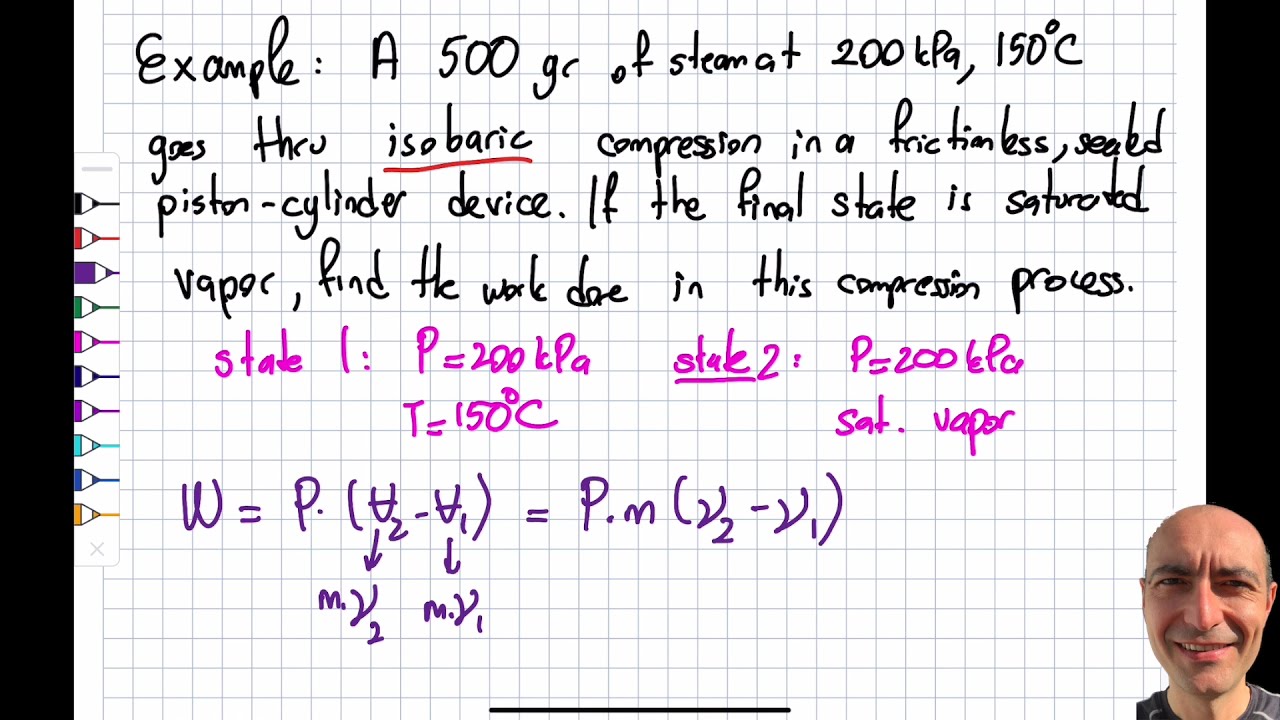 Example: A 500 gr of steam at 200 kPa, 150°C
goes thru isobaric compression in a frictionless, sealed
piston-cylinder device. If the final state is saturated
vapor, find the work done in this compression process.
state 1: P=200kPa state 2: P=200kPa
T=150°C sat. vapor
W = P.(V₂-V₁) = P.m(ν₂-ν₁)
m.ν₂ m.ν₁